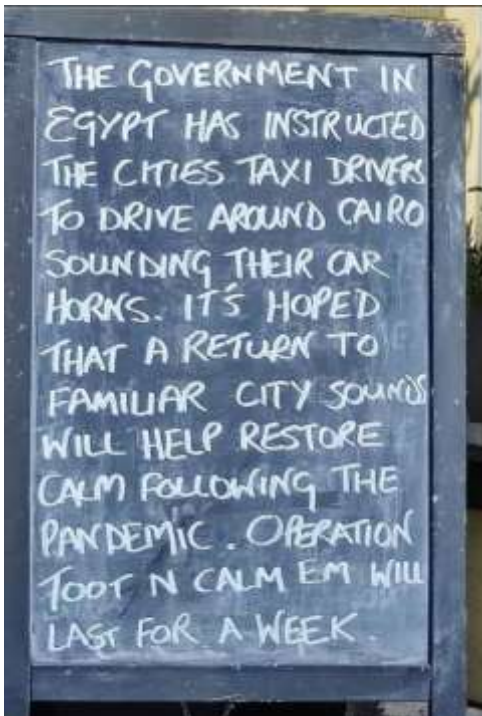 THE GOVERNMENT IN
EGYPT HAS INSTRUCTED
THE CITIES TAXI DRIVERS
TO DRIVE AROUND CAIRO
SOUNDING THEIR CAR
HORNS. IT'S HOPED
THAT A RETURN TO
FAMILIAR CITY SOUNDS
WILL HELP RESTORE
CALM FOLLOWING THE
PANDEMIC. OPERATION
TOOT N CALM EM WILL
LAST FOR A WEEK.